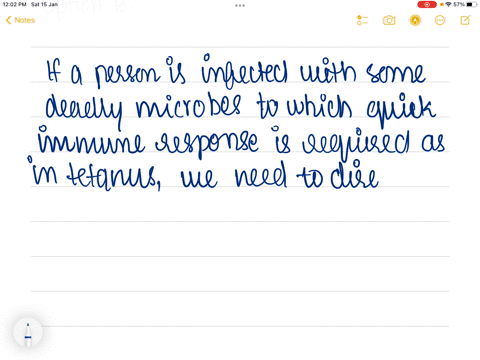 12:02 PM Sat 15 Jan
57%
Notes
If a person is infected with some
deadly microbes to which quick
immune response is required as
in tetanus, we need to dire